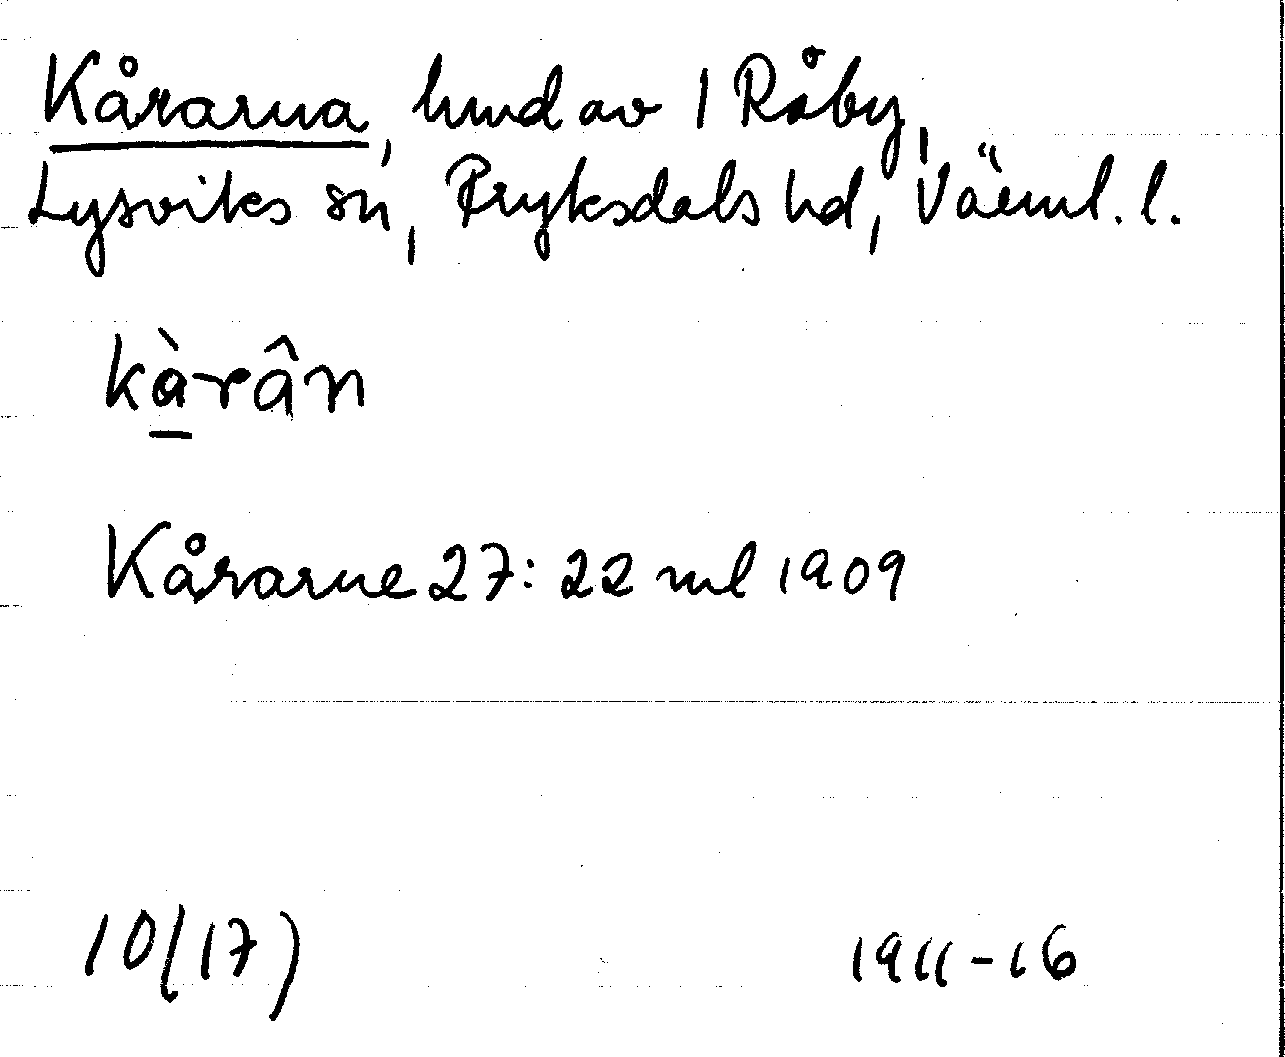 Kårarna, hmd av 1 Råby,
Lysviks sn, Fryksdals hd, Värml. l.
kàrân
Kårarne 27:22 ml 1909
10(17)
1911-16